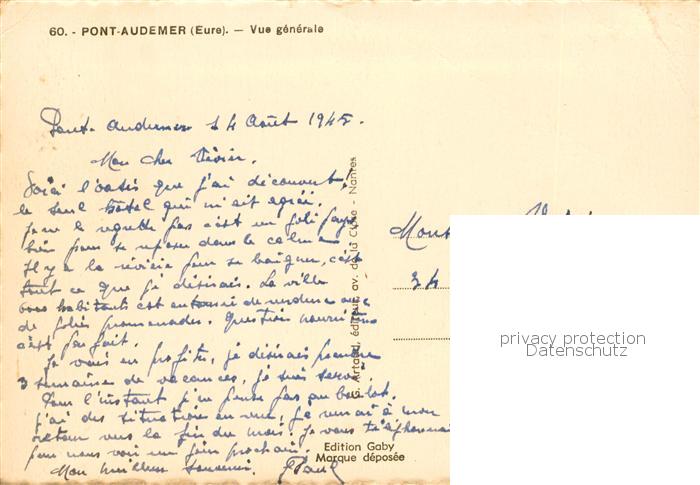 60. - PONT-AUDEMER (Eure). — Vue générale
Pont-Audemer 14 Août 1945.
Mon cher
Voici l'oasis que j'ai découvert!
le seul hôtel qui m'ait agréé.
je ne le regrette pas c'est un joli pays
bien pour se reposer dans le calme
Il y a la rivière pour se baigner, c'est
tout ce que je désirais. La ville
habitants est entourée de verdure avec
de jolies promenades. Question nourriture
c'est parfait.
Je vais en profiter, je désirais prendre
3 semaines de vacances, je suis servi.
Pour l'instant je ne pense pas au boulot.
j'ai des situations en vue, je verrai à mon
retour vers la fin du mois. Je vous téléphonerai
pour nous voir un jour prochain.
Mon meilleur souvenir. Paul
G. Artaud, éditeur, av. de la Close - Nantes
Mons
34
privacy protection
Datenschutz
Edition Gaby
Marque déposée